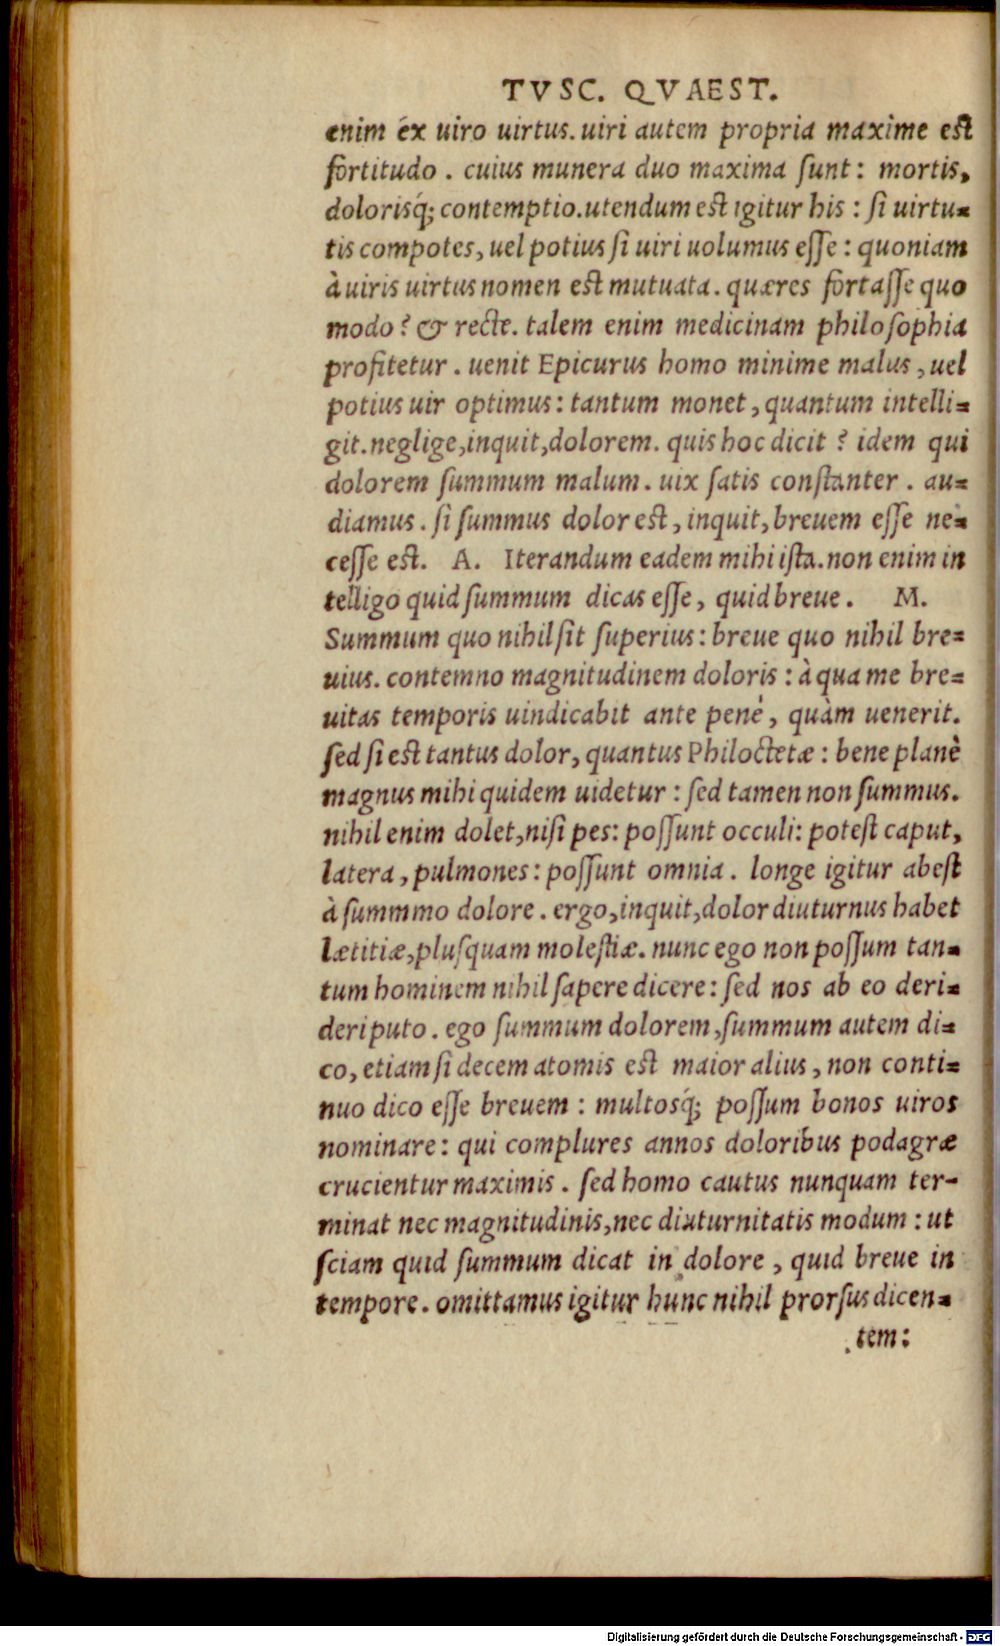 TVSC. QVAEST.
enim éx uiro uirtus. uiri autem propria maxìme est
fortitudo . cuius munera duo maxima ſunt : mortis,
dolorisq́; contemptio. utendum est igitur his : ſi uirtu-
tis compotes, uel potius ſi uiri uolumus eſſe : quoniam
à uiris uirtus nomen est mutuata . quæres fortaſſe quo
modo ? & recte. talem enim medicinam philoſophia
profitetur . uenit Epicurus homo minime malus , uel
potius uir optimus : tantum monet , quantum intelli-
git. neglige, inquit, dolorem. quis hoc dicit ? idem qui
dolorem ſummum malum . uix ſatis conſtanter . au-
diamus . ſi ſummus dolor est , inquit, breuem eſſe ne-
ceſſe est. A. Iterandum eadem mihi iſta. non enim in
telligo quid ſummum dicas eſſe, quid breue . M.
Summum quo nihil ſit ſuperius : breue quo nihil bre-
uius. contemno magnitudinem doloris : à qua me bre-
uitas temporis uindicabit ante pené , quàm uenerit.
ſed ſi est tantus dolor, quantus Philoctetæ : bene planè
magnus mihi quidem uidetur : ſed tamen non ſummus.
nihil enim dolet, niſi pes : poſſunt occuli : poteſt caput,
latera, pulmones : poſſunt omnia . longe igitur abeſt
à ſummmo dolore . ergo, inquit, dolor diuturnus habet
lætitiæ, pluſquam moleſtiæ. nunc ego non poſſum tan-
tum hominem nihil ſapere dicere : ſed nos ab eo deri-
deri puto . ego ſummum dolorem, ſummum autem di-
co, etiam ſi decem atomis est maior alius , non conti-
nuo dico eſſe breuem : multosq́; poſſum bonos uiros
nominare : qui complures annos doloribus podagræ
crucientur maximis . ſed homo cautus nunquam ter-
minat nec magnitudinis, nec diuturnitatis modum : ut
ſciam quid ſummum dicat in dolore , quid breue in
tempore . omittamus igitur hunc nihil prorſus dicen-
tem :
Digitalisierung gefördert durch die Deutsche Forschungsgemeinschaft - DFG